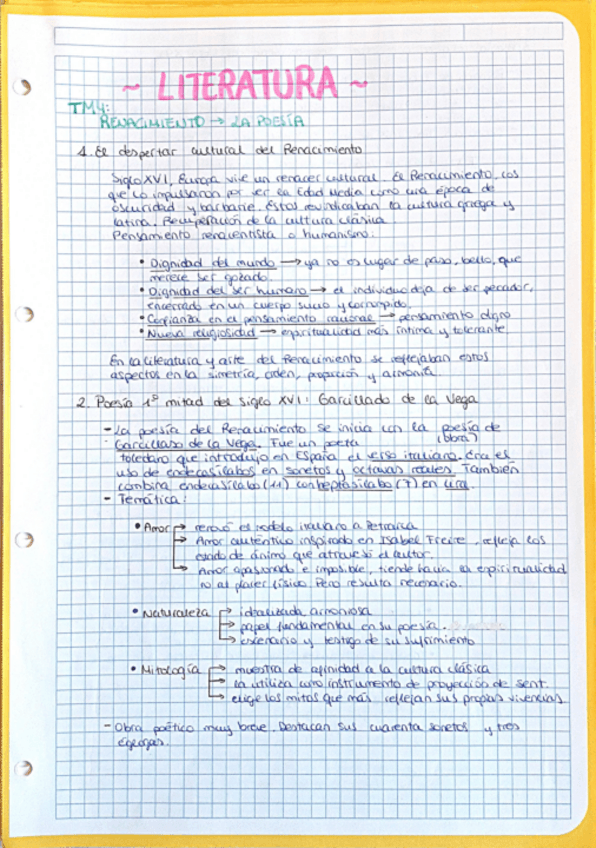 ~ LITERATURA ~
TM4:
RENACIMIENTO → LA POESÍA
1. El despertar cultural del Renacimiento
Siglo XVI, Europa vive un renacer cultural. El Renacimiento, los
que lo impulsaron por ver la Edad Media como una época de
oscuridad y barbarie. Estos reivindicaban la cultura griega y
latina. Recuperación de la cultura clásica
Pensamiento renacentista o humanismo:
• Dignidad del mundo → ya no es lugar de paso, bello, que
merece ser gozado.
• Dignidad del ser humano → el individuo deja de ser pecador,
encerrado en un cuerpo sucio y corrompido.
• Confianza en el pensamiento racional → pensamiento digno
• Nueva religiosidad → espiritualidad más íntima y tolerante.
En la literatura y arte del Renacimiento se reflejaban estos
aspectos en la simetría, orden, proporción y armonía.
2. Poesía 1º mitad del siglo XVI: Garcillado de la Vega
- La poesía del Renacimiento se inicia con la poesía de
(obra)
Garcillaso de la Vega. Fue un poeta
toledano que introdujo en España el verso italiano. Era el
uso de endecasílabos en sonetos y octavas reales. También
combina endecasílabo (11) con heptasílabo (7) en lira.
- Temática:
• Amor → renovó el modelo italiano a Petrarca
→ Amor auténtico inspirado en Isabel Freire, refleja los
estado de ánimo que atravesó el autor.
→ Amor apasionado e imposible, tiende hacia la espiritualidad
no al placer físico. Pero resulta necesario.
• Naturaleza → idealizada, armoniosa
→ papel fundamental en su poesía.
→ escenario y testigo de su sufrimiento
• Mitología → muestra de afinidad a la cultura clásica
→ la utiliza como instrumento de proyección de sent.
→ elige los mitos que más reflejan sus propias vivencias.
- Obra poético muy breve. Destacan sus cuarenta sonetos y tres
églogas.